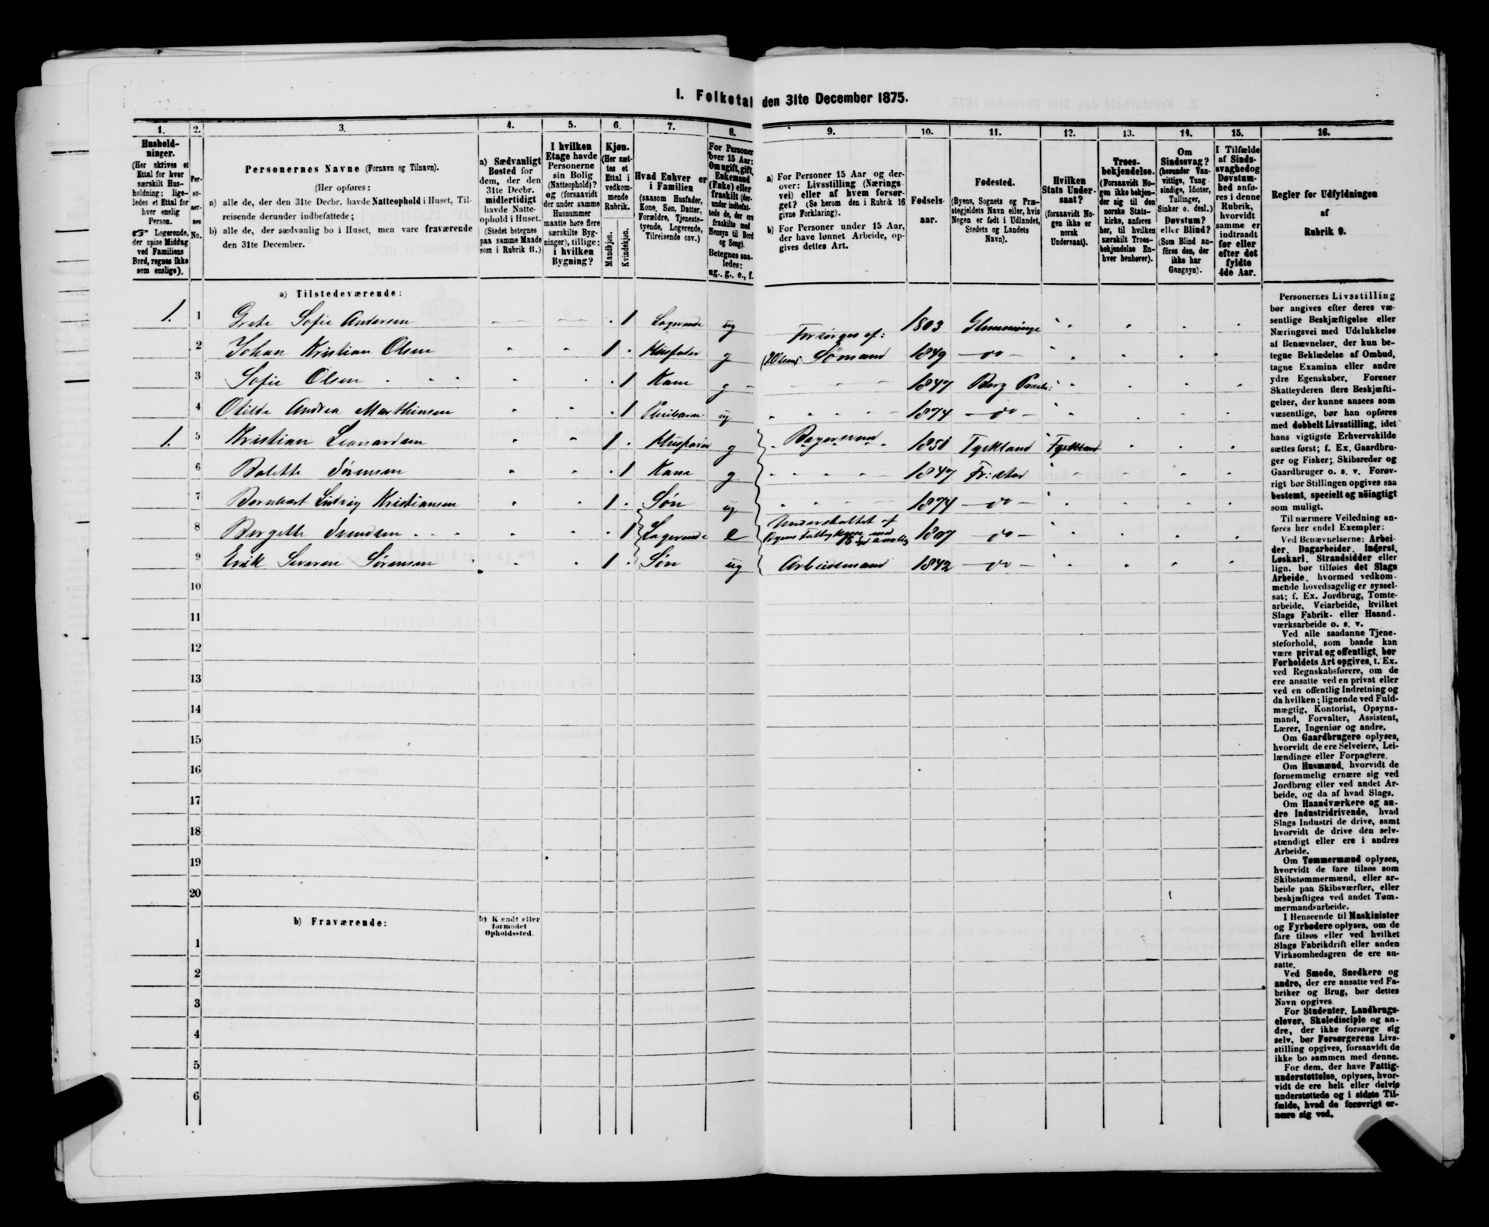 1. Folketal den 31te December 1875.
1. 2. 3. 4. 5. 6. 7. 8. 9. 10. 11. 12. 13. 14. 15. 16.
Hushold-
ninger.
(Her skrives et
Ettal for hver
særskilt Hus-
holdning; lige-
ledes et Ettal for
hver enslig
Person.
☞ Logerende,
der spise Middag
ved Familiens
Bord, regnes ikke
som enslige).
Per-
so-
ner-
nes
No.
Personernes Navne (Fornavn og Tilnavn).
(Her opføres:
a) alle de, der den 31te Decbr. havde Natteophold i Huset, Til-
reisende derunder indbefattede;
b) alle de, der sædvanlig bo i Huset, men vare fraværende
den 31te December.
a) Sædvanligt
Bosted for
dem, der den
31te Decbr.
midlertidigt
havde Natte-
ophold i Huset.
(Stedet betegnes
paa samme Maade
som i Rubrik 11.)
I hvilken
Etage havde
Personerne
sin Bolig
(Natteophold)?
og (forsaavidt
der under samme
Husnummer
maatte høre flere
særskilte Byg-
ninger), tillige:
i hvilken
Bygning?
Kjøn.
(Her sæt-
tes et
Ettal i
vedkom-
mende
Rubrik.
Mandkjøn.
Kvindekjøn.
Hvad Enhver er
i Familien
(saasom Husfader,
Kone, Søn, Datter,
Forældre, Tjeneste-
tyende, Logerende,
Tilreisende osv.)
For Personer
over 15 Aar:
Om ugift, gift,
Enkemand
(Enke) eller
fraskilt (der-
under indbefat-
tede de, der ere
fraskilte med
Hensyn til Bord
og Seng).
Betegnes saa-
ledes:
ug., g., e., f.
a) For Personer 15 Aar og der-
over: Livsstilling (Nærings
vei) eller af hvem forsør-
get? (Se herom den i Rubrik 16
givne Forklaring).
b) For Personer under 15 Aar,
der have lønnet Arbeide, op-
gives dettes Art.
Fødsels-
aar.
Fødested.
(Byens, Sognets og Præ-
stegjeldets Navn eller, hvis
Nogen er født i Udlandet,
Stedets og Landets
Navn).
Hvilken
Stats Under-
saat?
(forsaavidt No-
gen ikke er
norsk
Undersaat).
Troes-
bekjendelse.
(Forsaavidt No-
gen ikke bekjen-
der sig til den
norske Stats-
kirke, anføres
her, til hvilken
særskilt Troes-
bekjendelse En-
hver henhører).
Om
Sindssvag?
(herunder Van-
vittige, Tung
sindige, Idioter,
Tullinger,
Sinker o. desl.)
Døvstum?
eller Blind?
(Som Blind an-
føres den, der
ikke har
Gangsyn).
I Tilfælde
af Sinds-
svaghed og
Døvstum-
hed anfø-
res i denne
Rubrik,
hvorvidt
samme er
indtraadt
før eller
efter det
fyldte
4de Aar.
Regler for Udfyldningen
af
Rubrik 9.
a) Tilstedeværende:
1. 1 Grete Sofie Andersen 1 Logerende ug Forsørges af: 1803 Glemminge
2 Johan Kristian Olsen 1 Husfader g Sømand 1849 —"—
3 Sofie Olsen 1 Kone g 1847 Berg
4 Otilde Andrea Marthinsen 1 Pleiebarn ug 1874 —"—
1. 5 Kristian Leonardsen 1 Husfader g 1851 Tyskland Tyskland
6 Bolette Sørensen 1 Kone g 1847 Fr:stad
7 Bernhart Ludvig Kristiansen 1 Søn ug 1874 —"—
8 1 Logerende e Understøttet af 1807 —"—
9 Erik Sørensen 1 Søn ug Arbeidsmand 1842 —"—
10
11
12
13
14
15
16
17
18
19
20
b) Fraværende: b) Kjendt eller
formodet
Opholdssted.
1
2
3
4
5
6
Personernes Livsstilling
bør angives efter deres væ-
sentlige Beskjæftigelse eller
Næringsvei med Udelukkelse
af Benævnelser, der kun be-
tegne Beklædelse af Ombud,
tagne Examina eller andre
ydre Egenskaber. Forener
Skatteyderen flere Beskjæfti-
gelser, der kunne ansees som
væsentlige, bør han opføres
med dobbelt Livsstilling, idet
hans vigtigste Erhvervskilde
sættes først; f. Ex. Gaardbru-
ger og Fisker; Skibsreder og
Gaardbruger o. s. v. Forøv-
rigt bør Stillingen opgives saa
bestemt, specielt og nöiagtigt
som muligt.
Til nærmere Veiledning an-
føres her endel Exempler:
Ved Benævnelserne: Arbei-
der, Dagarbeider, Inderst,
Løskarl, Strandsidder eller
lign. bør tilføies det Slags
Arbeide, hvormed vedkom-
mende hovedsagelig er syssel-
sat; f. Ex. Jordbrug, Tomte-
arbeide, Veiarbeide, hvilket
Slags Fabrik- eller Haand-
værksarbeide o. s. v.
Ved alle saadanne Tjene-
steforhold, som baade kan
være privat og offentligt, bør
Forholdets Art opgives, t. Ex.
ved Regnskabsførere, om de
ere ansatte ved en privat eller
ved en offentlig Indretning og
da hvilken; lignende ved Fuld-
mægtig, Kontorist, Opsyns-
mand, Forvalter, Assistent,
Lærer, Ingeniør og andre.
Om Gaardbrugere oplyses,
hvorvidt de ere Selveiere, Lei-
lændinge eller Forpagtere.
Om Husmænd, hvorvidt de
fornemmelig ernære sig ved
Jordbrug eller ved andet Ar-
beide, og da af hvad Slags.
Om Haandværkere og an-
dre Industridrivende, hvad
Slags Industri de drive, samt
hvorvidt de drive den selv-
stændigt eller ere i andres
Arbeide.
Om Tømmermænd oplyses,
hvorvidt de fare tilsøs som
Skibstømmermænd, eller ar-
beide paa Skibsværfter, eller
beskjæftiges ved andet Tøm-
mermandsarbeide.
I Henseende til Maskinister
og Fyrbødere oplyses, om de
fare tilsøs eller ved hvilket
Slags Fabrikdrift eller anden
Virksomhedsgren de ere an-
satte.
Ved Smede, Snedkere og
andre, der ere ansatte ved Fa-
briker og Brug, bør dettes
Navn opgives
For Studenter, Landbrugs-
elever, Skoledisciple og an-
dre, der ikke forsørge sig
selv, bør Forsørgerens Livs-
stilling opgives, forsaavidt de
ikke bo sammen med denne.
For dem, der have Fattig-
understøttelse, oplyses, hvor-
vidt de ere helt eller delvis
understøttede og i sidste Til-
fælde, hvad de forøvrigt er-
nære sig ved.